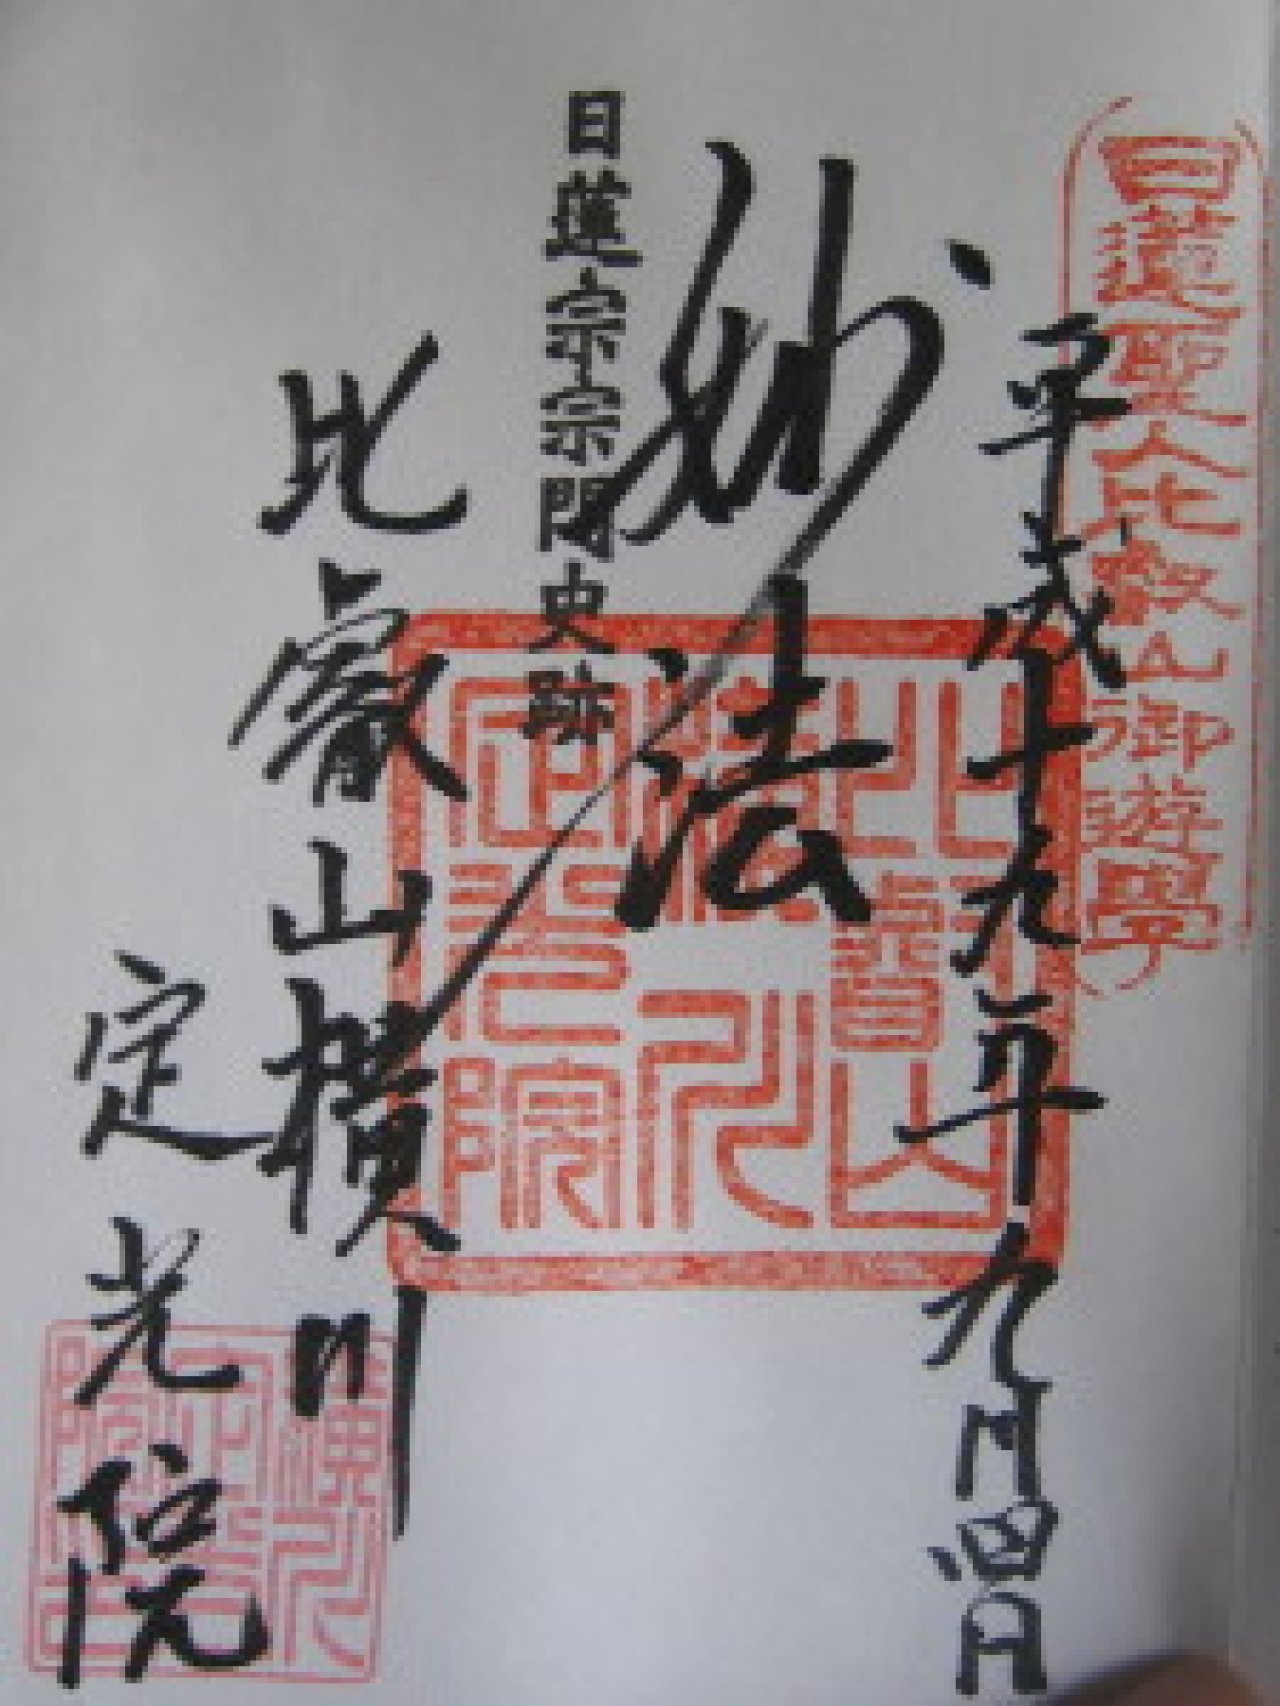 日蓮聖人比叡山御遊學
平成十九年九月四日
妙法
日蓮宗宗門史跡
比叡山横川
定光院
比叡山横川定光院